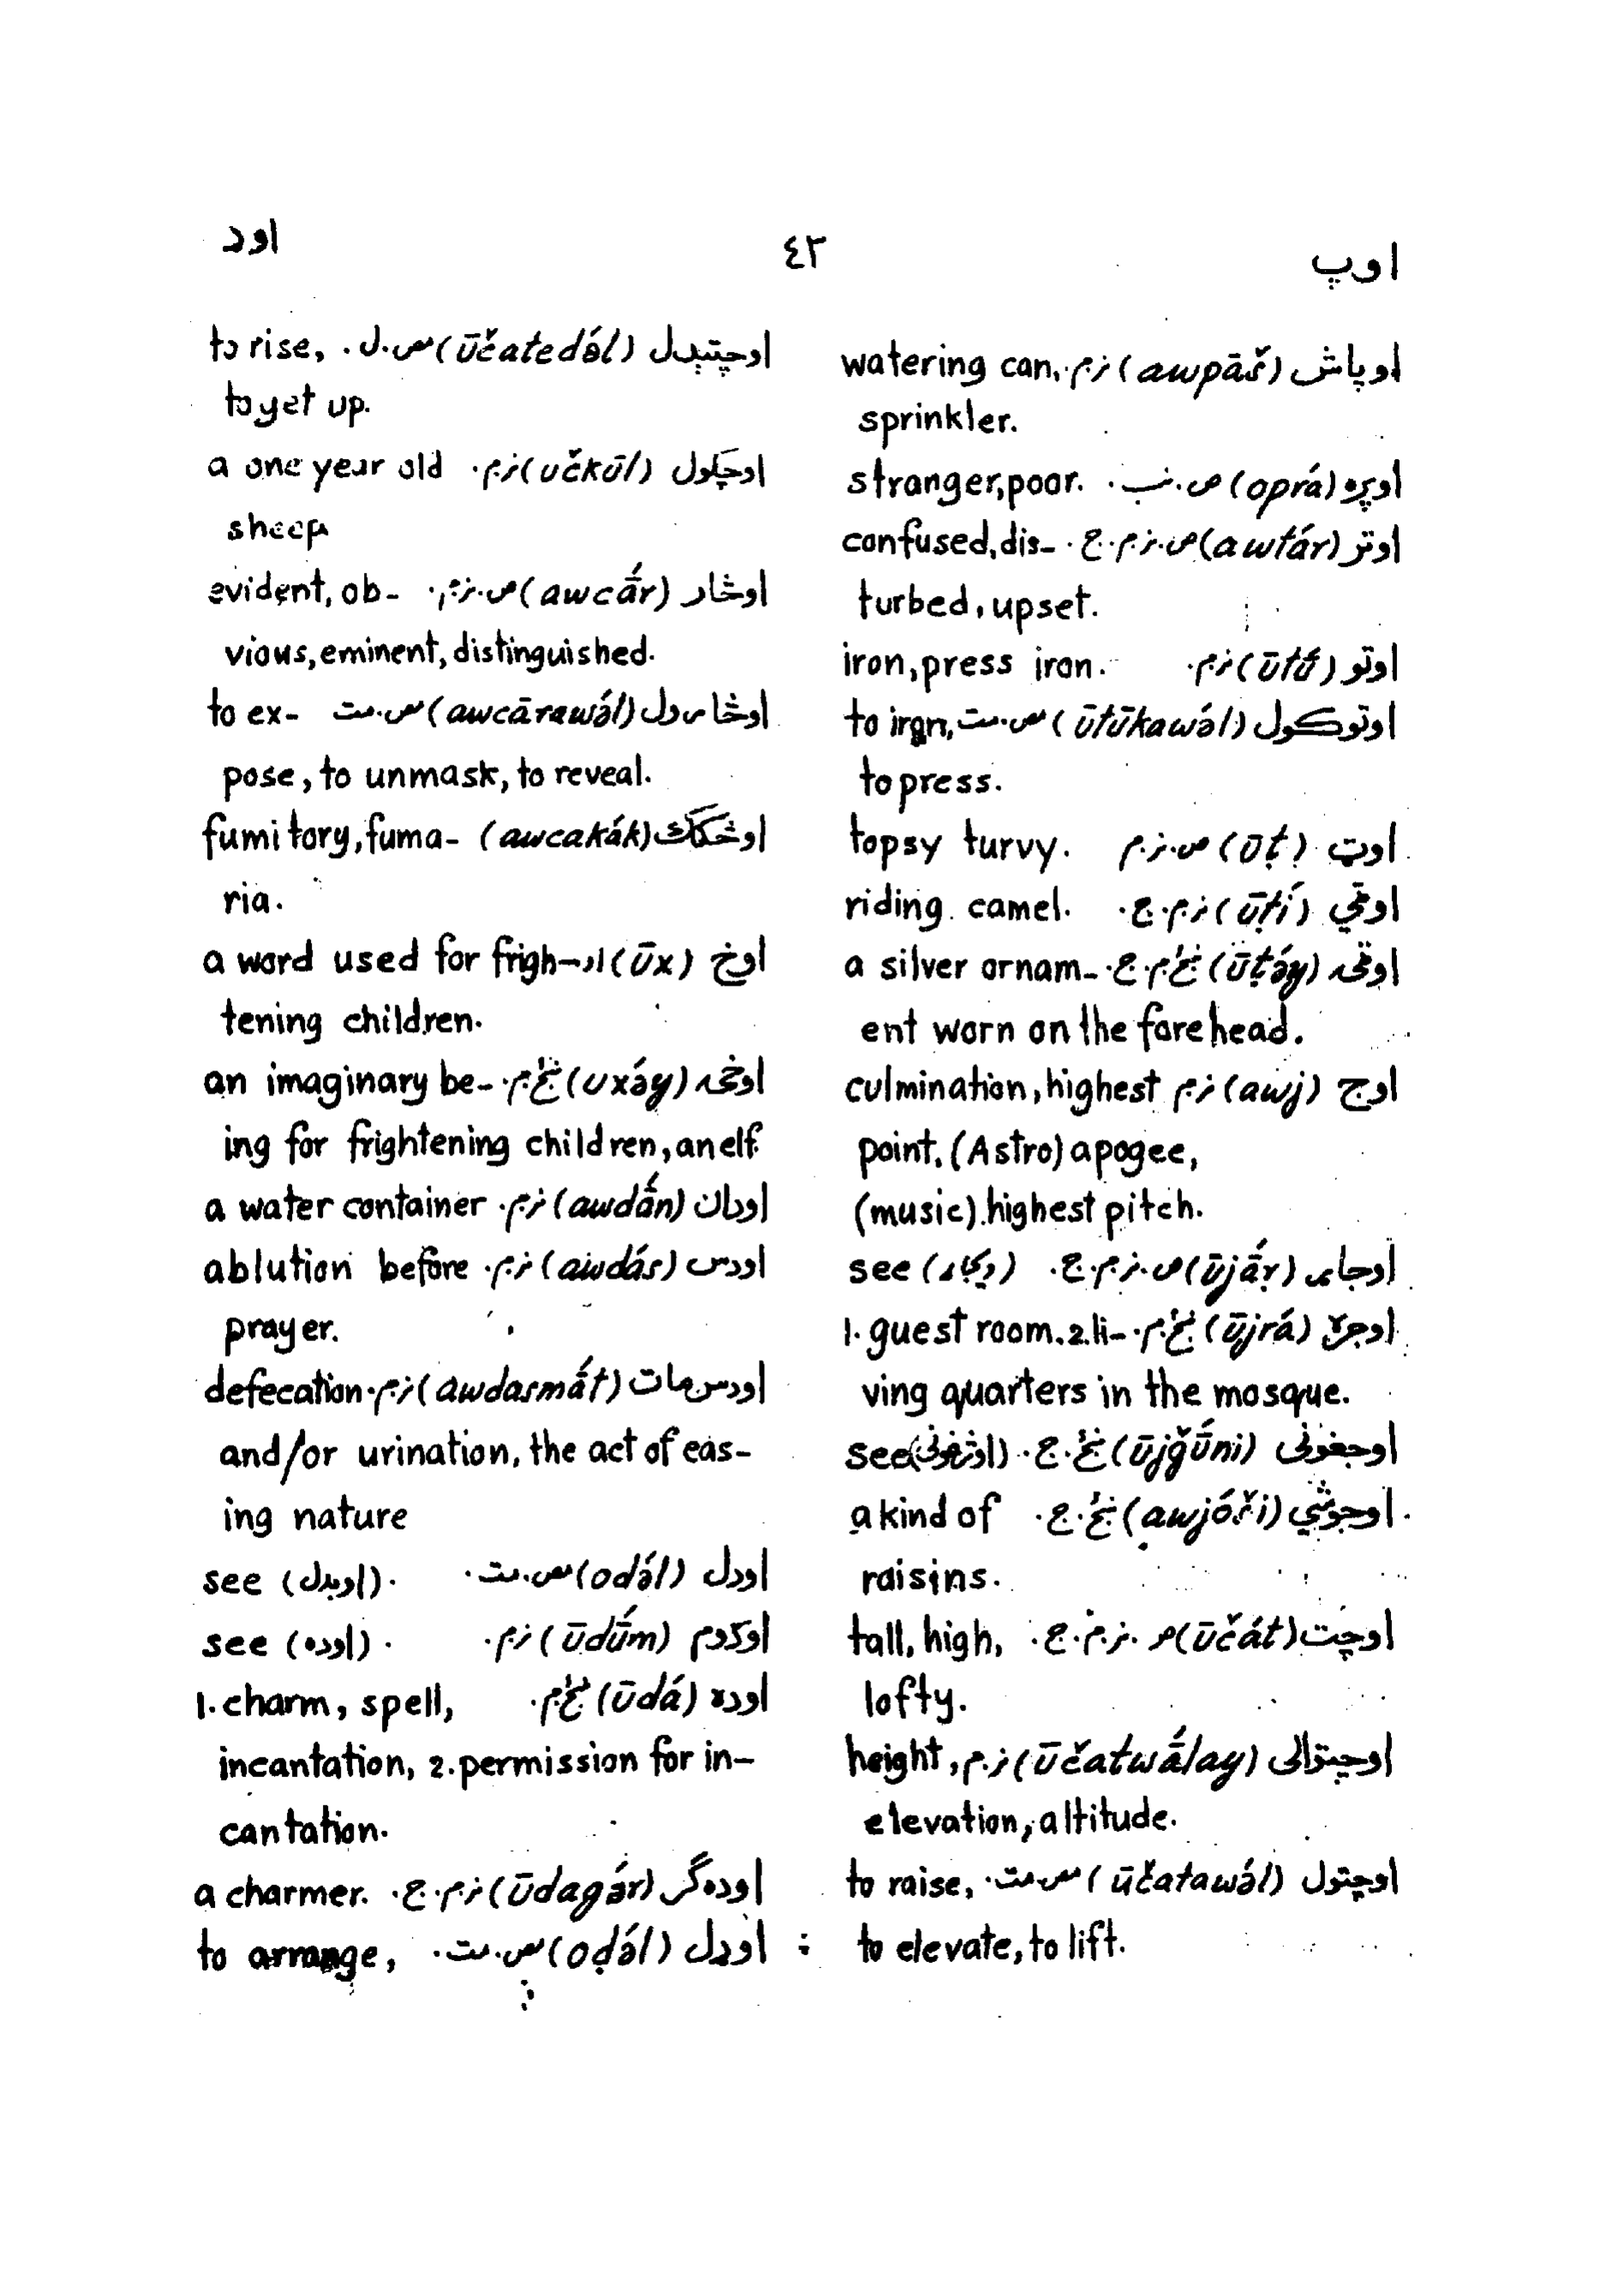 اوپ
٤٢
اود
اوپاش (awpāš) ن.م. watering can,
sprinkler.
اوپره (oprá) ص.نب. stranger, poor.
اوتر (awtár) ص.ن.م.ج. confused, dis-
turbed, upset.
اوتو (ūtū́) ن.م. iron, press iron.
اوتوکول (ūtūkawə́l) س.مت. to iron,
to press.
اوټ (ūṭ) ص.ن.م topsy turvy.
اوټي (ūṭí) ن.م.ج. riding camel.
اوټۍ (ūṭə́y) ښځ.م.ج. a silver ornam-
ent worn on the forehead.
اوج (awj) ن.م culmination, highest
point, (Astro) apogee,
(music) highest pitch.
اوجاړ (ūjā́ṛ) ص.ن.م.ج. see
اوجره (ūjrá) ښځ.م. 1. guest room. 2. li-
ving quarters in the mosque.
اوجغونى (ūjğū́ni) ښځ.ج. see
اوجوښي (awjóx̌i) ښځ.ج. a kind of
raisins.
اوچت (ūčát) ص.ن.م.ج. tall, high,
lofty.
اوچتوالى (ūčatwā́lay) ن.م height,
elevation, altitude.
اوچتول (ūčatawə́l) س.مت. to raise,
to elevate, to lift.
اوچتېدل (ūčatedə́l) س.ل. to rise,
to get up.
اوچکول (učkūl) ن.م. a one year old
sheep
اوڅار (awcā́r) ص.ن.م. evident, ob-
vious, eminent, distinguished.
اوڅارول (awcārawə́l) س.مت to ex-
pose, to unmask, to reveal.
اوڅکک (awcakák) fumitory, fuma-
ria.
اوخ (ūx) ار a word used for frigh-
tening children.
اوخۍ (uxə́y) ښځ.م. an imaginary be-
ing for frightening children, an elf
اودان (awdā́n) ن.م. a water container
اودس (awdás) ن.م. ablution before
prayer.
اودس مات (awdasmā́t) ن.م. defecation
and/or urination, the act of eas-
ing nature
اودل (odə́l) س.مت. see (اوبدل).
اودوم (ūdū́m) ن.م. see (اوده).
اوده (ūdá) ښځ.م. 1. charm, spell,
incantation, 2. permission for in-
cantation.
اوده‌گر (ūdagár) ن.م.ج. a charmer.
اوډل (oḍə́l) س.مت. to arrange,